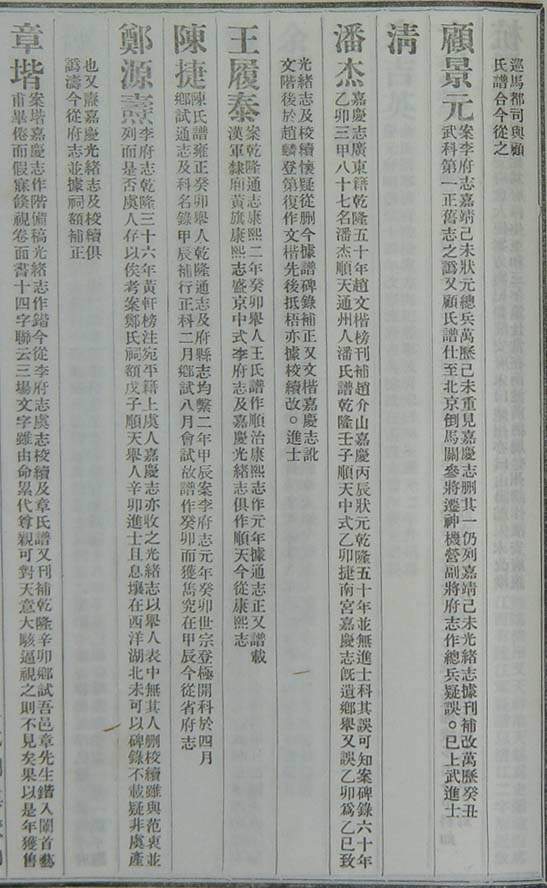 巡馬都司與顧
氏譜合今從之
顧景元
案李府志嘉靖己未狀元總兵萬歷己未重見嘉慶志刪其一仍列嘉靖己未光緒志據刊補改萬歷癸丑
武科第一正舊志之譌又顧氏譜仕至北京倒馬關參將遷神機營副將府志作總兵疑誤。已上武進士
清
潘杰
嘉慶志廣東籍乾隆五十年趙文楷榜刊補趙介山嘉慶丙辰狀元乾隆五十年並無進士科其誤可知案碑錄六十年
乙卯三甲八十七名潘杰順天通州人潘氏譜乾隆壬子順天中式乙卯捷南宮嘉慶志旣遺鄉舉又誤乙卯爲乙巳致
光緒志及校續懷疑從刪今據譜碑錄補正又文楷嘉慶志訛
文階後於趙麟登第復作文楷先後抵梧亦據校續改。進士
王履泰
案乾隆通志康熙二年癸卯舉人王氏譜作順治康熙志作元年據通志正又譜載
漢軍隸廂黃旗康熙志盛京中式李府志及嘉慶光緒志俱作順天今從康熙志
陳捷
陳氏譜雍正癸卯舉人乾隆通志及府縣志均繫二年甲辰案李府志元年癸卯世宗登極開科於四月
鄉試通志及科名錄甲辰補行正科二月鄉試八月會試故譜作癸卯而獲雋究在甲辰今從省府志
鄭源燾
李府志乾隆三十六年黃軒榜注宛平籍上虞人嘉慶志亦收之光緒志以舉人表中無其人刪校續雖與范衷並
列而是否虞人存以俟考案鄭氏祠額戊子順天舉人辛卯進士且息壤在西洋湖北未可以碑錄不載疑非虞產
也又燾嘉慶光緒志及校續俱
譌濤今從府志並據祠額補正
章堦
案堦嘉慶志作階備稿光緒志作鍇今從李府志虞志校續及章氏譜又刊補乾隆辛卯鄉試吾邑章先生鍇入闈首藝
甫畢倦而假寐倐視卷面書十四字聯云三場文字雖由命累代尊親可對天意大駭逼視之則不見矣果以是年獲售